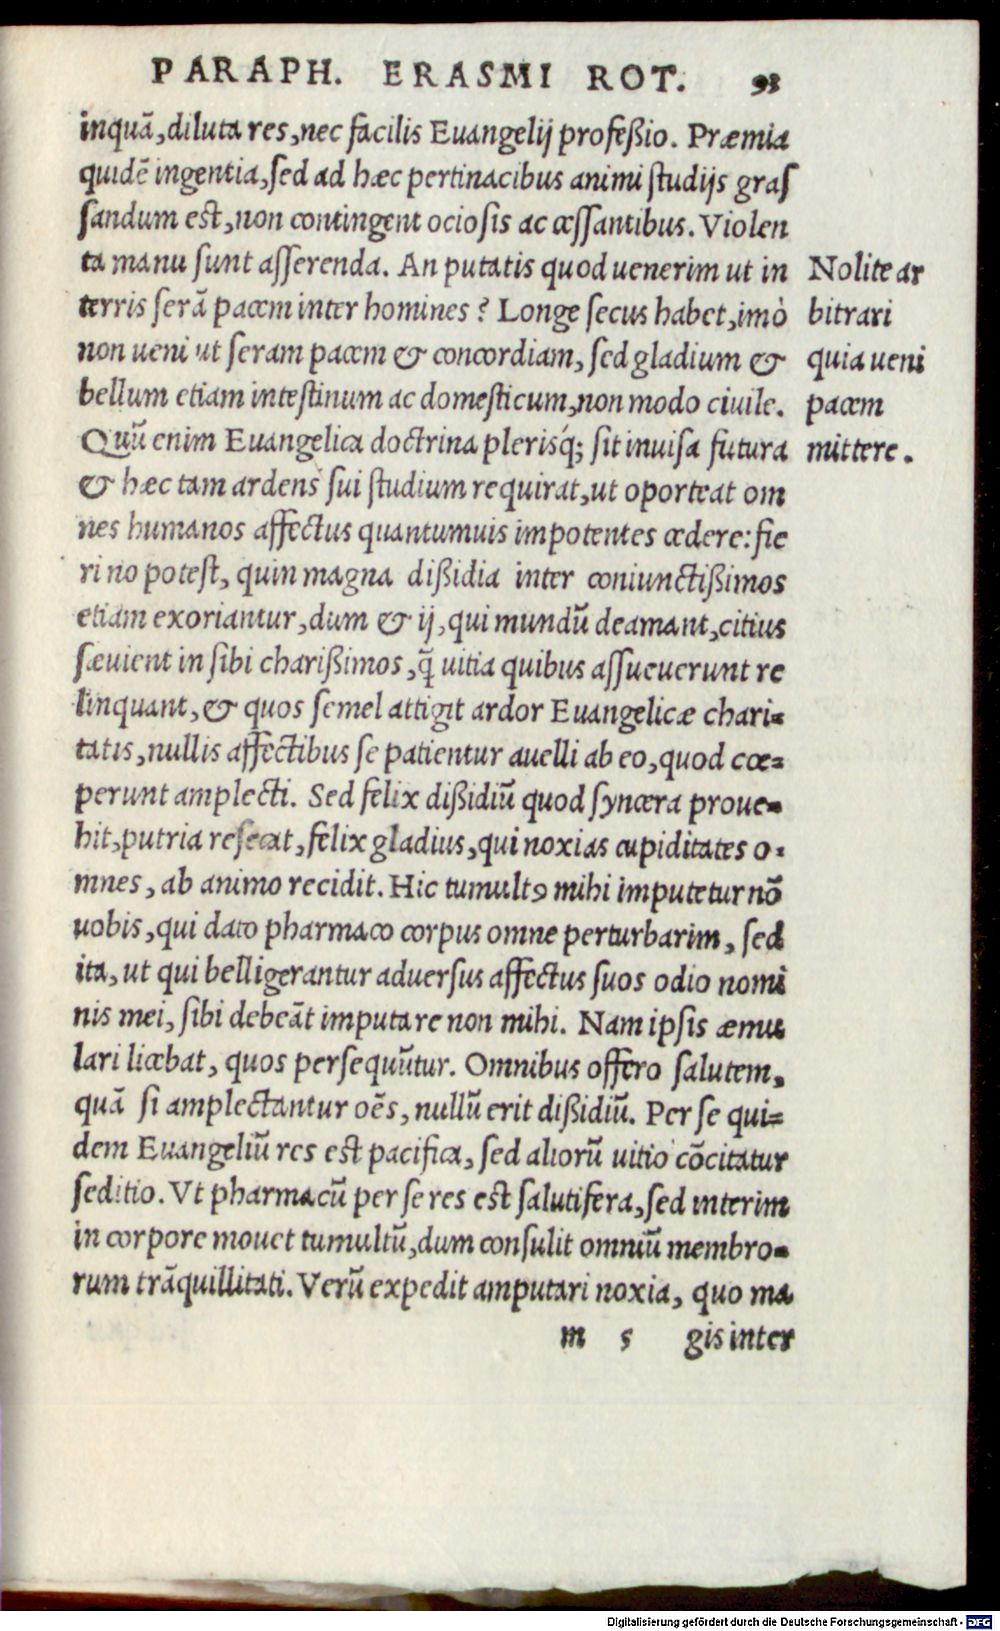 PARAPH. ERASMI ROT. 93
inquā, diluta res, nec facilis Euangelij profeßio. Præmia
quidē ingentia, sed ad hæc pertinacibus animi studijs gras
sandum est, non contingent ociosis ac cessantibus. Violen
ta manu sunt asserenda. An putatis quod uenerim ut in
terris serā pacem inter homines? Longe secus habet, imò
non ueni ut seram pacem & concordiam, sed gladium &
bellum etiam intestinum ac domesticum, non modo ciuile.
Quū enim Euangelica doctrina plerisq́; sit inuisa futura
& hæc tam ardens sui studium requirat, ut oporteat om
nes humanos affectus quantumuis impotentes cedere: fie
ri no potest, quin magna dißidia inter coniunctißimos
etiam exoriantur, dum & ij, qui mundū deamant, citius
sæuient in sibi charißimos, q̄ uitia quibus assueuerunt re
linquant, & quos semel attigit ardor Euangelicæ chari=
tatis, nullis affectibus se patientur auelli ab eo, quod cœ=
perunt amplecti. Sed felix dißidiū quod syncera proue=
hit, putria resecat, felix gladius, qui noxias cupiditates o=
mnes, ab animo recidit. Hic tumultꝯ mihi imputetur nō
uobis, qui dato pharmaco corpus omne perturbarim, sed
ita, ut qui belligerantur aduersus affectus suos odio nomi
nis mei, sibi debeāt imputare non mihi. Nam ipsis æmu
lari licebat, quos persequūtur. Omnibus offero salutem,
quā si amplectantur oēs, nullū erit dißidiū. Per se qui=
dem Euangeliū res est pacifica, sed aliorū uitio cōcitatur
seditio. Vt pharmacū per se res est salutifera, sed interim
in corpore mouet tumultū, dum consulit omniū membro=
rum trāquillitati. Verū expedit amputari noxia, quo ma
m 5 gis inter
Nolite ar
bitrari
quia ueni
pacem
mittere.
Digitalisierung gefördert durch die Deutsche Forschungsgemeinschaft - DFG